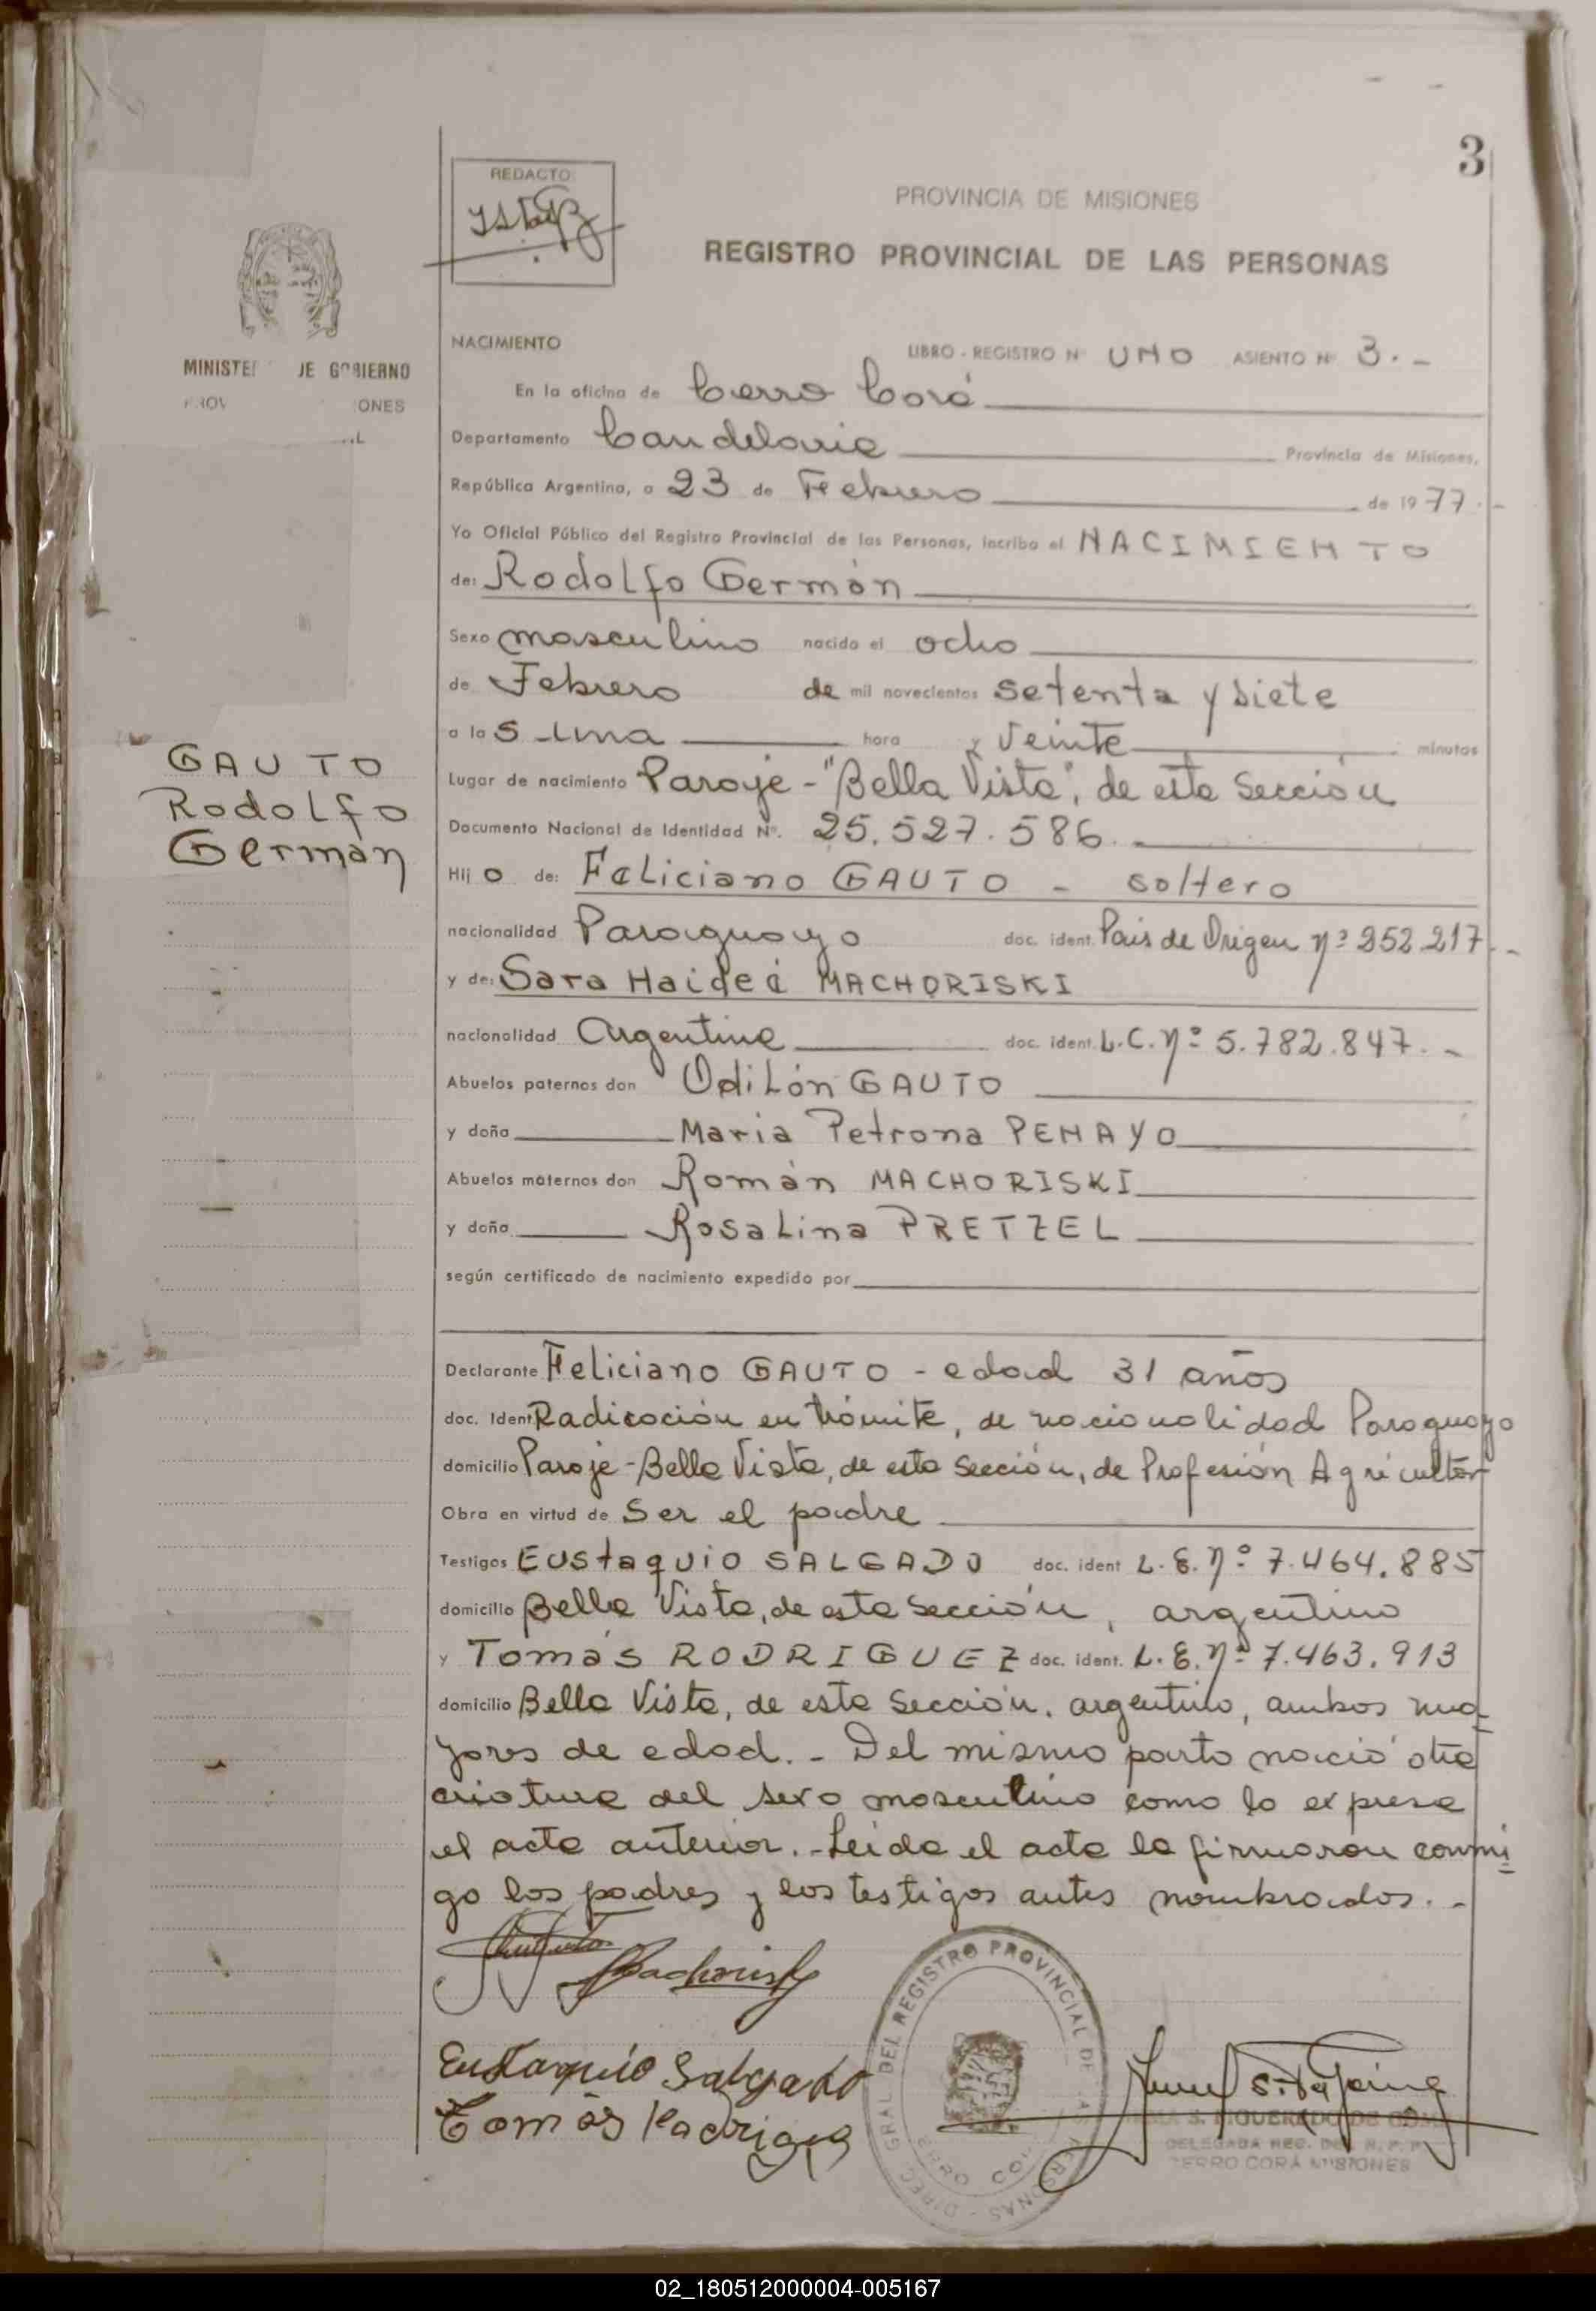 3
REDACTO:
PROVINCIA DE MISIONES
REGISTRO PROVINCIAL DE LAS PERSONAS
MINISTE DE GOBIERNO
NACIMIENTO
LIBRO - REGISTRO Nº UNO ASIENTO Nº 3. -
En la oficina de Cerro Corá
Departamento Candelaria Provincia de Misiones,
República Argentina, a 23 de Febrero de 1977. -
Yo Oficial Público del Registro Provincial de las Personas, incribo el NACIMIENTO
de: Rodolfo Germán
Sexo masculino nacido el ocho
de Febrero de mil novecientos setenta y siete
a las una hora y veinte minutos
GAUTO
Rodolfo
Germán
Lugar de nacimiento Paraje - "Bella Vista", de esta Sección
Documento Nacional de Identidad Nº. 25.527.586. -
Hijo de: Feliciano GAUTO - soltero
nacionalidad Paraguayo doc. ident. País de Origen nº 252.217. -
y de: Sara Haideé MACHORISKI
nacionalidad Argentina doc. ident. L.C. nº 5.782.847. -
Abuelos paternos don Odilón GAUTO
y doña Maria Petrona PENAYO
Abuelos maternos don Román MACHORISKI
y doña Rosalina PRETZEL
según certificado de nacimiento expedido por
Declarante Feliciano GAUTO - edad 31 años
doc. Ident. Radicación en trámite, de nacionalidad Paraguayo
domicilio Paraje - Bella Vista, de esta Sección, de Profesión Agricultor
Obra en virtud de Ser el padre
Testigos Eustaquio SALGADO doc. ident L.E. nº 7.464.885
domicilio Bella Vista, de esta Sección, argentino
y Tomás RODRIGUEZ doc. ident. L.E. nº 7.463.913
domicilio Bella Vista, de esta Sección, argentino, ambos ma-
yores de edad. - Del mismo parto nació otra
criatura del sexo masculino como lo expresa
el acta anterior. - Leída el acta la firmaron conmi-
go los padres y los testigos antes nombrados. -
Eustaquio Salgado
Tomás Rodrigues
DEL REGISTRO PROVINCIAL DE LAS PERSONAS
S. FIGUEREDO DE
DELEGADA REG. DEL R. P. P.
CERRO CORÁ MISIONES
02_180512000004-005167